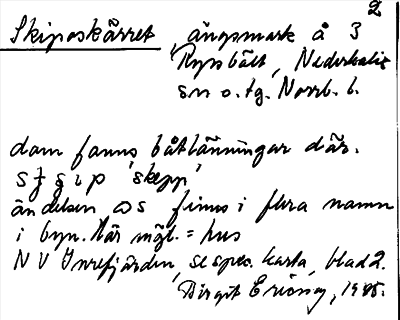 2
Skiposkärret, ängsmark å 3
Rysbält, Nederkalix
sn o. tg. Norrb. l.
dom fanns båtlänningar där.
'skepp'
ändelsen os finns i flera namn
i byn. Här mögl. = hus
NV Inrefjärden, se spec. karta, blad 2.
Birgit Eriöns, 1985.